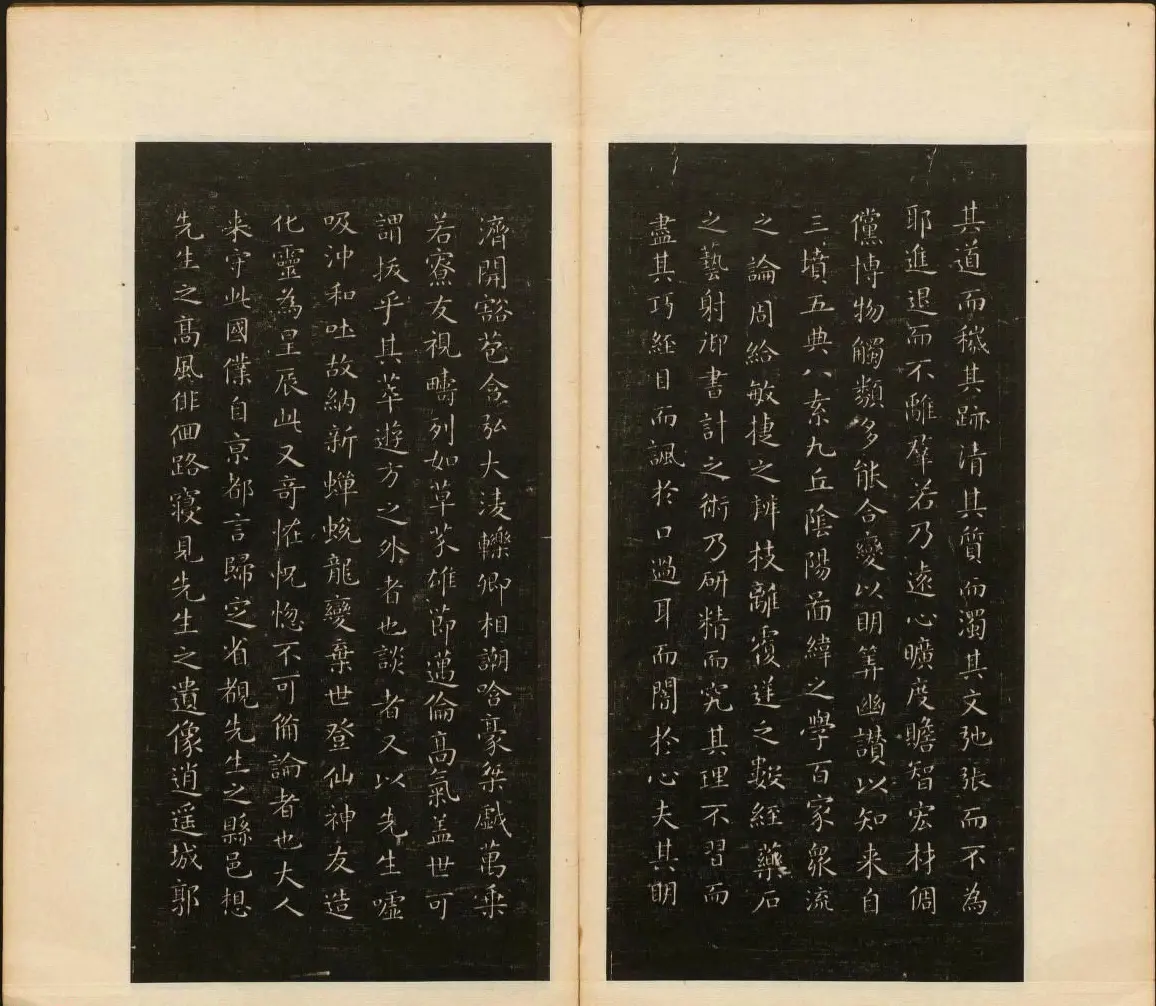 其道而穢其跡清其質而濁其文弛張而不為
耶進退而不離羣若乃遠心曠度贍智宏材倜
儻博物觸類多能合變以明筭幽讃以知来自
三墳五典八素九丘陰陽啚緯之學百家衆流
之論周給敏捷之辨枝離覆逆之數經藥石
之藝射御書計之術乃研精而究其理不習而
盡其巧經目而諷於口過耳而闇於心夫其明
濟開豁苞含弘大淩轢卿相謿唅豪桀戱萬乗
若寮友視疇列如草芥雄節邁倫髙氣盖世可
謂拔乎其萃遊方之外者也談者又以先生嘘
吸沖和吐故納新蟬蛻龍變棄世登仙神友造
化靈為星辰此又奇恠怳惚不可俻論者也大人
来守此國僕自京都言歸定省覩先生之縣邑想
先生之髙風俳佪路寢見先生之遺像逍遥城郭